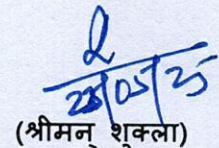 28/05/25
(श्रीमन् शुक्ला)